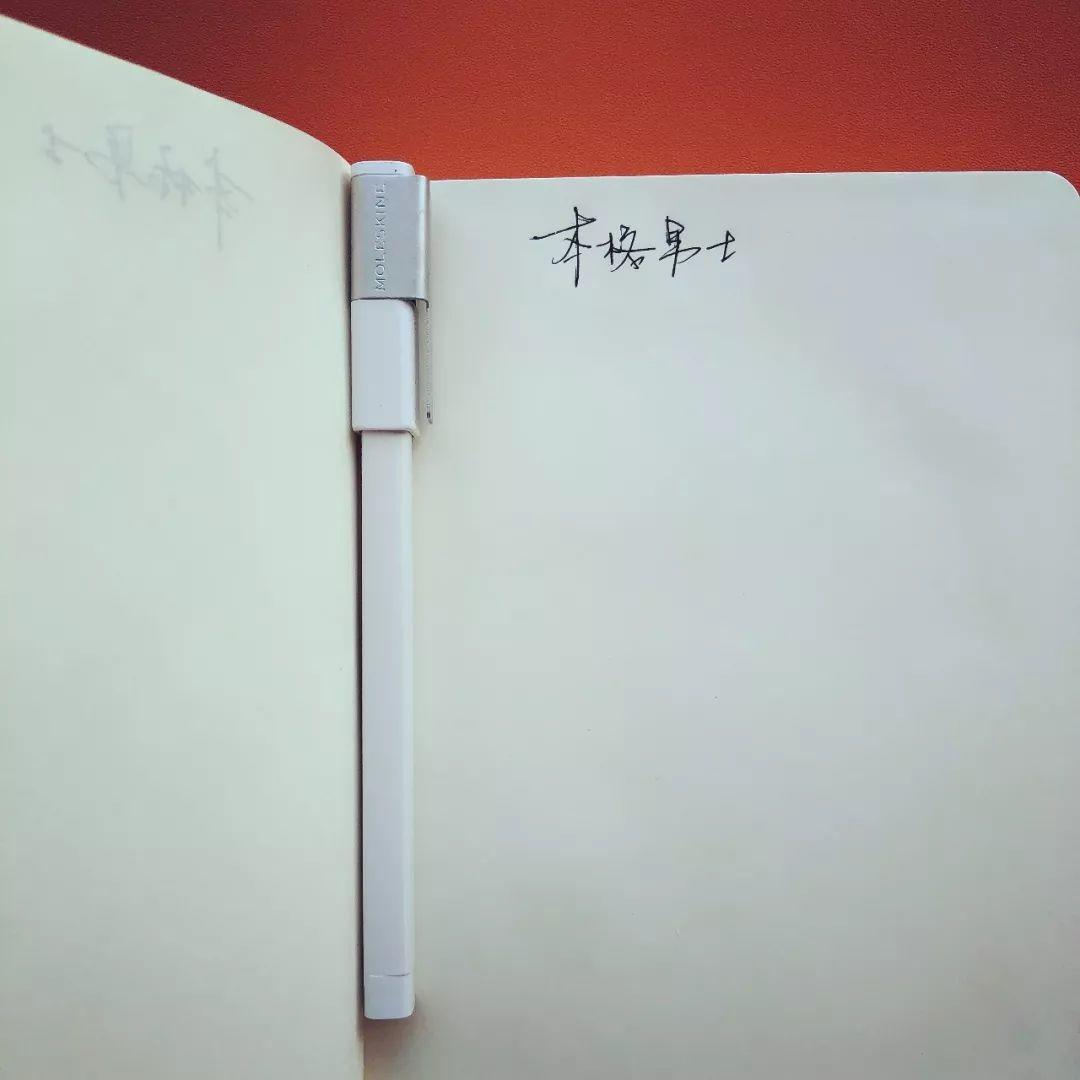 MOLESKINE
本格男士